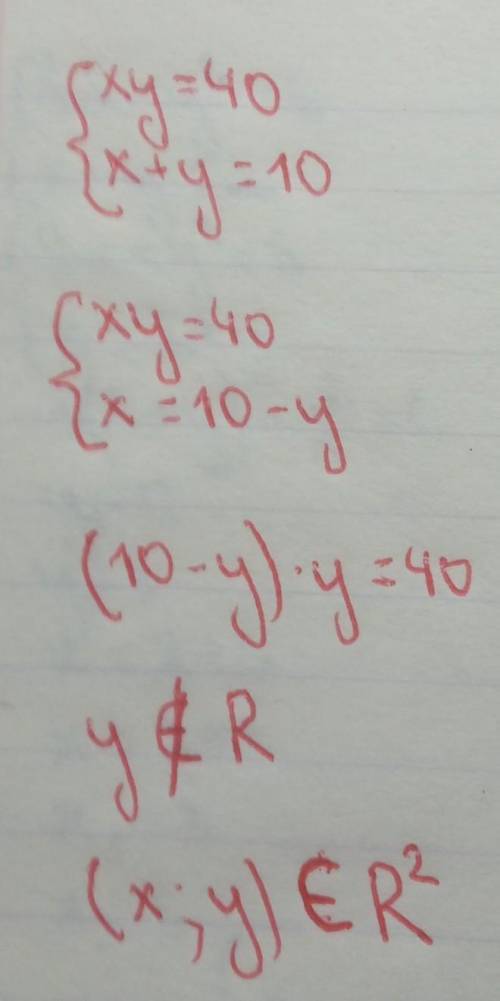 {xy=40
{x+y=10
{xy=40
{x=10-y
(10-y)·y=40
y∉R
(x;y)∈R²